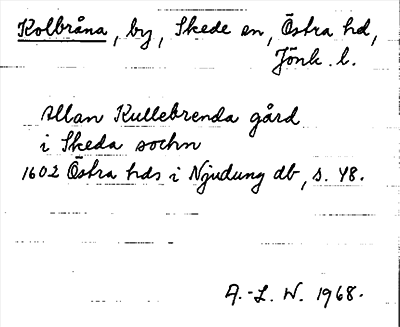 Kolbråna, by, Skede sn, Östra hd,
Jönk. l.
utlan Kullebrenda gård
i Skeda sochn
1602 Östra hds i Njudung db, s. 48.
A.-L. W. 1968.